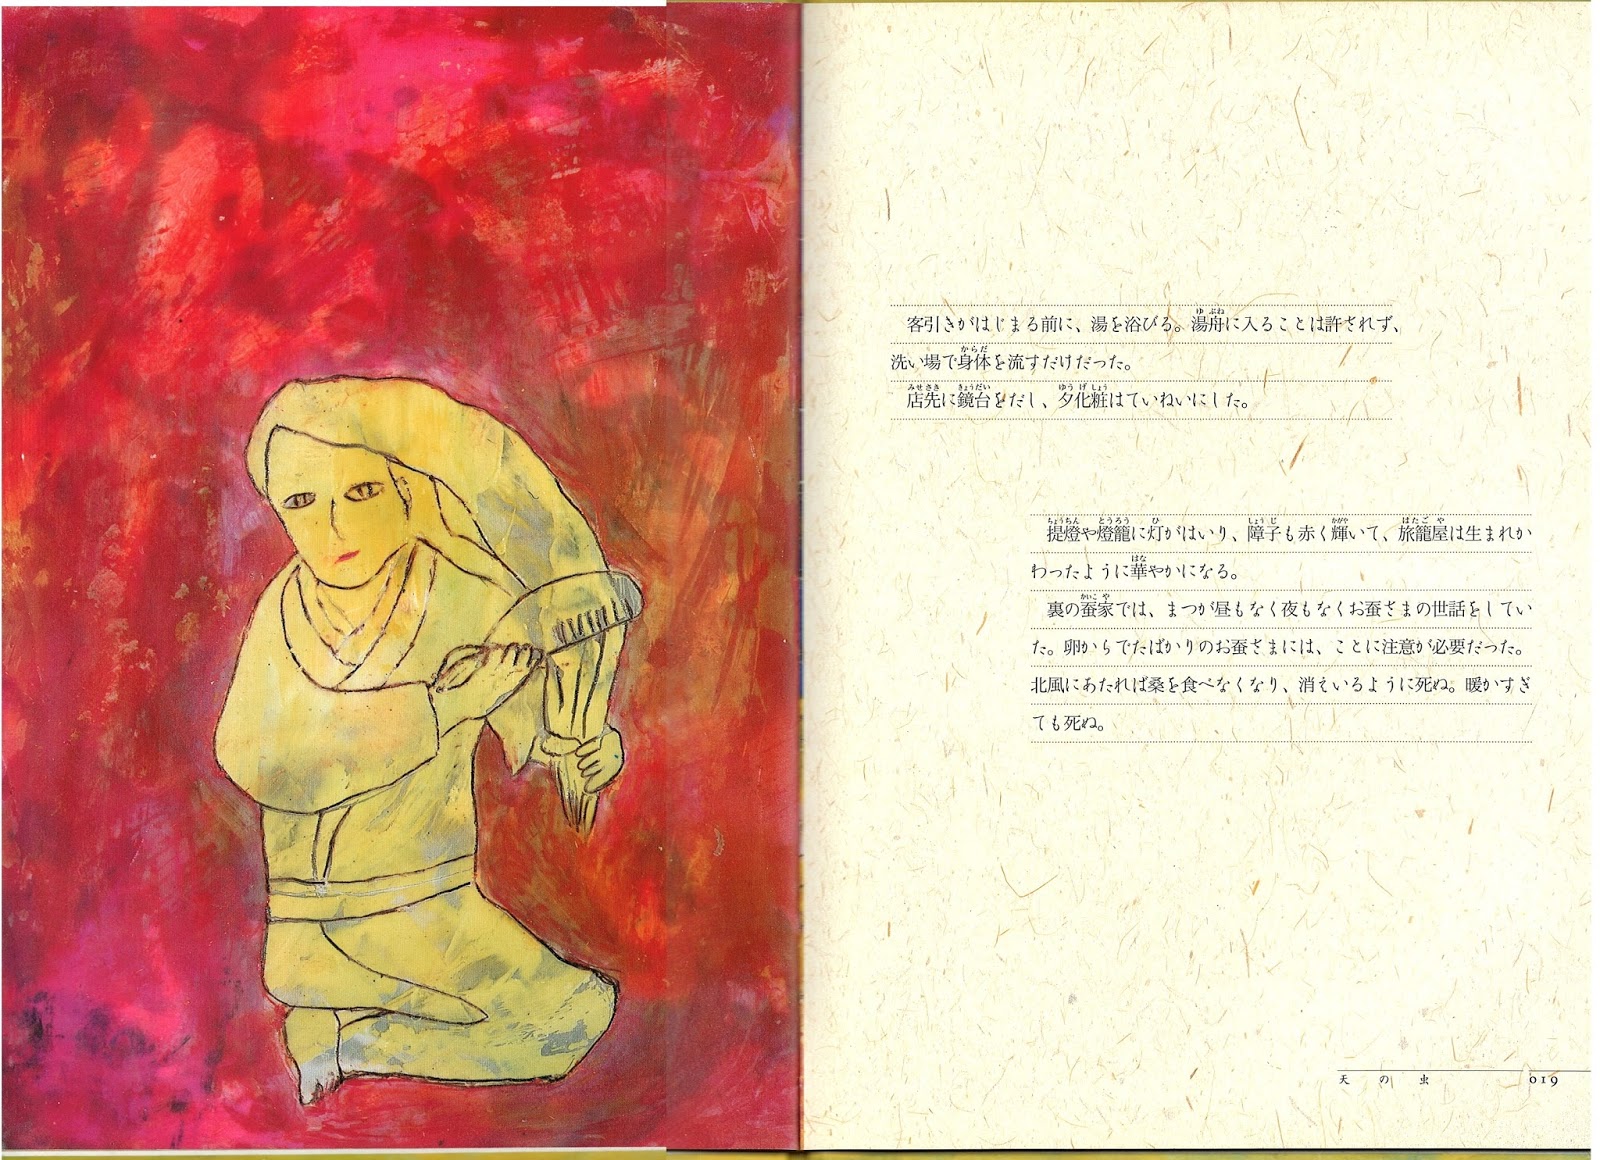 客引きがはじまる前に、湯を浴びる。湯舟に入ることは許されず、
洗い場で身体を流すだけだった。
店先に鏡台をだし、夕化粧はていねいにした。
提燈や燈籠に灯がはいり、障子も赤く輝いて、旅籠屋は生まれか
わったように華やかになる。
裏の蚕家では、まつが昼もなく夜もなくお蚕さまの世話をしてい
た。卵からでたばかりのお蚕さまには、ことに注意が必要だった。
北風にあたれば桑を食べなくなり、消えいるように死ぬ。暖かすぎ
ても死ぬ。
天の虫 019